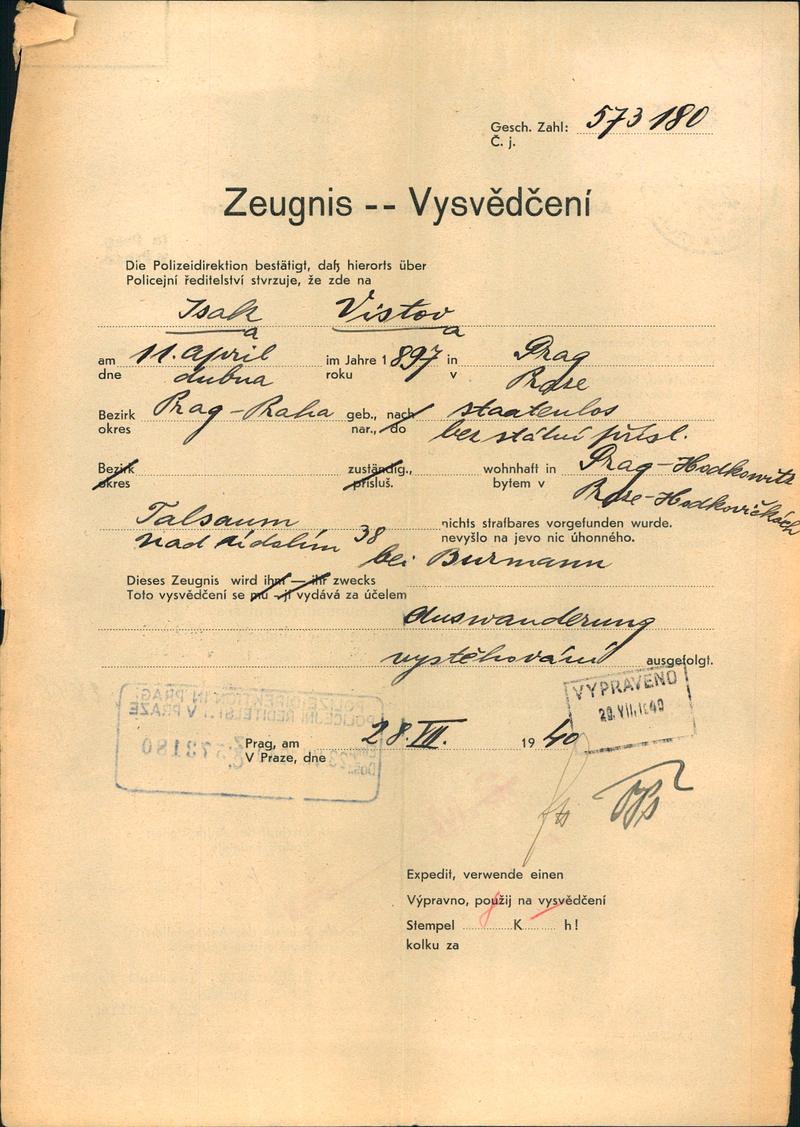 Gesch. Zahl: 573 180
Č. j.
Zeugnis -- Vysvědčení
Die Polizeidirektion bestätigt, daß hierorts über
Policejní ředitelství stvrzuje, že zde na
Isak Vistov
a a
am 11. April im Jahre 1 897 in Prag
dne dubna roku v Praze
Bezirk Prag - Praha geb., nach staatenlos
okres nar., do bez státní přísl.
Bezirk zuständig., wohnhaft in Prag - Hodkowitz
okres přísluš. bytem v Praze - Hodkovičkách
Talsaum nichts strafbares vorgefunden wurde.
nad údolím 38 nevyšlo na jevo nic úhonného.
bei Burmann
Dieses Zeugnis wird ihm — ihr zwecks
Toto vysvědčení se mu - jí vydává za účelem
Auswanderung
vystěhování ausgefolgt.
VYPRAVENO
29. VII. 1940
POLIZEIDIREKTION IN PRAG
POLICEJNÍ ŘEDITELSTVÍ V PRAZE
573180
Prag, am 28. VII. 19 40
V Praze, dne
Expedit, verwende einen
Výpravno, použij na vysvědčení
Stempel K h!
kolku za 8